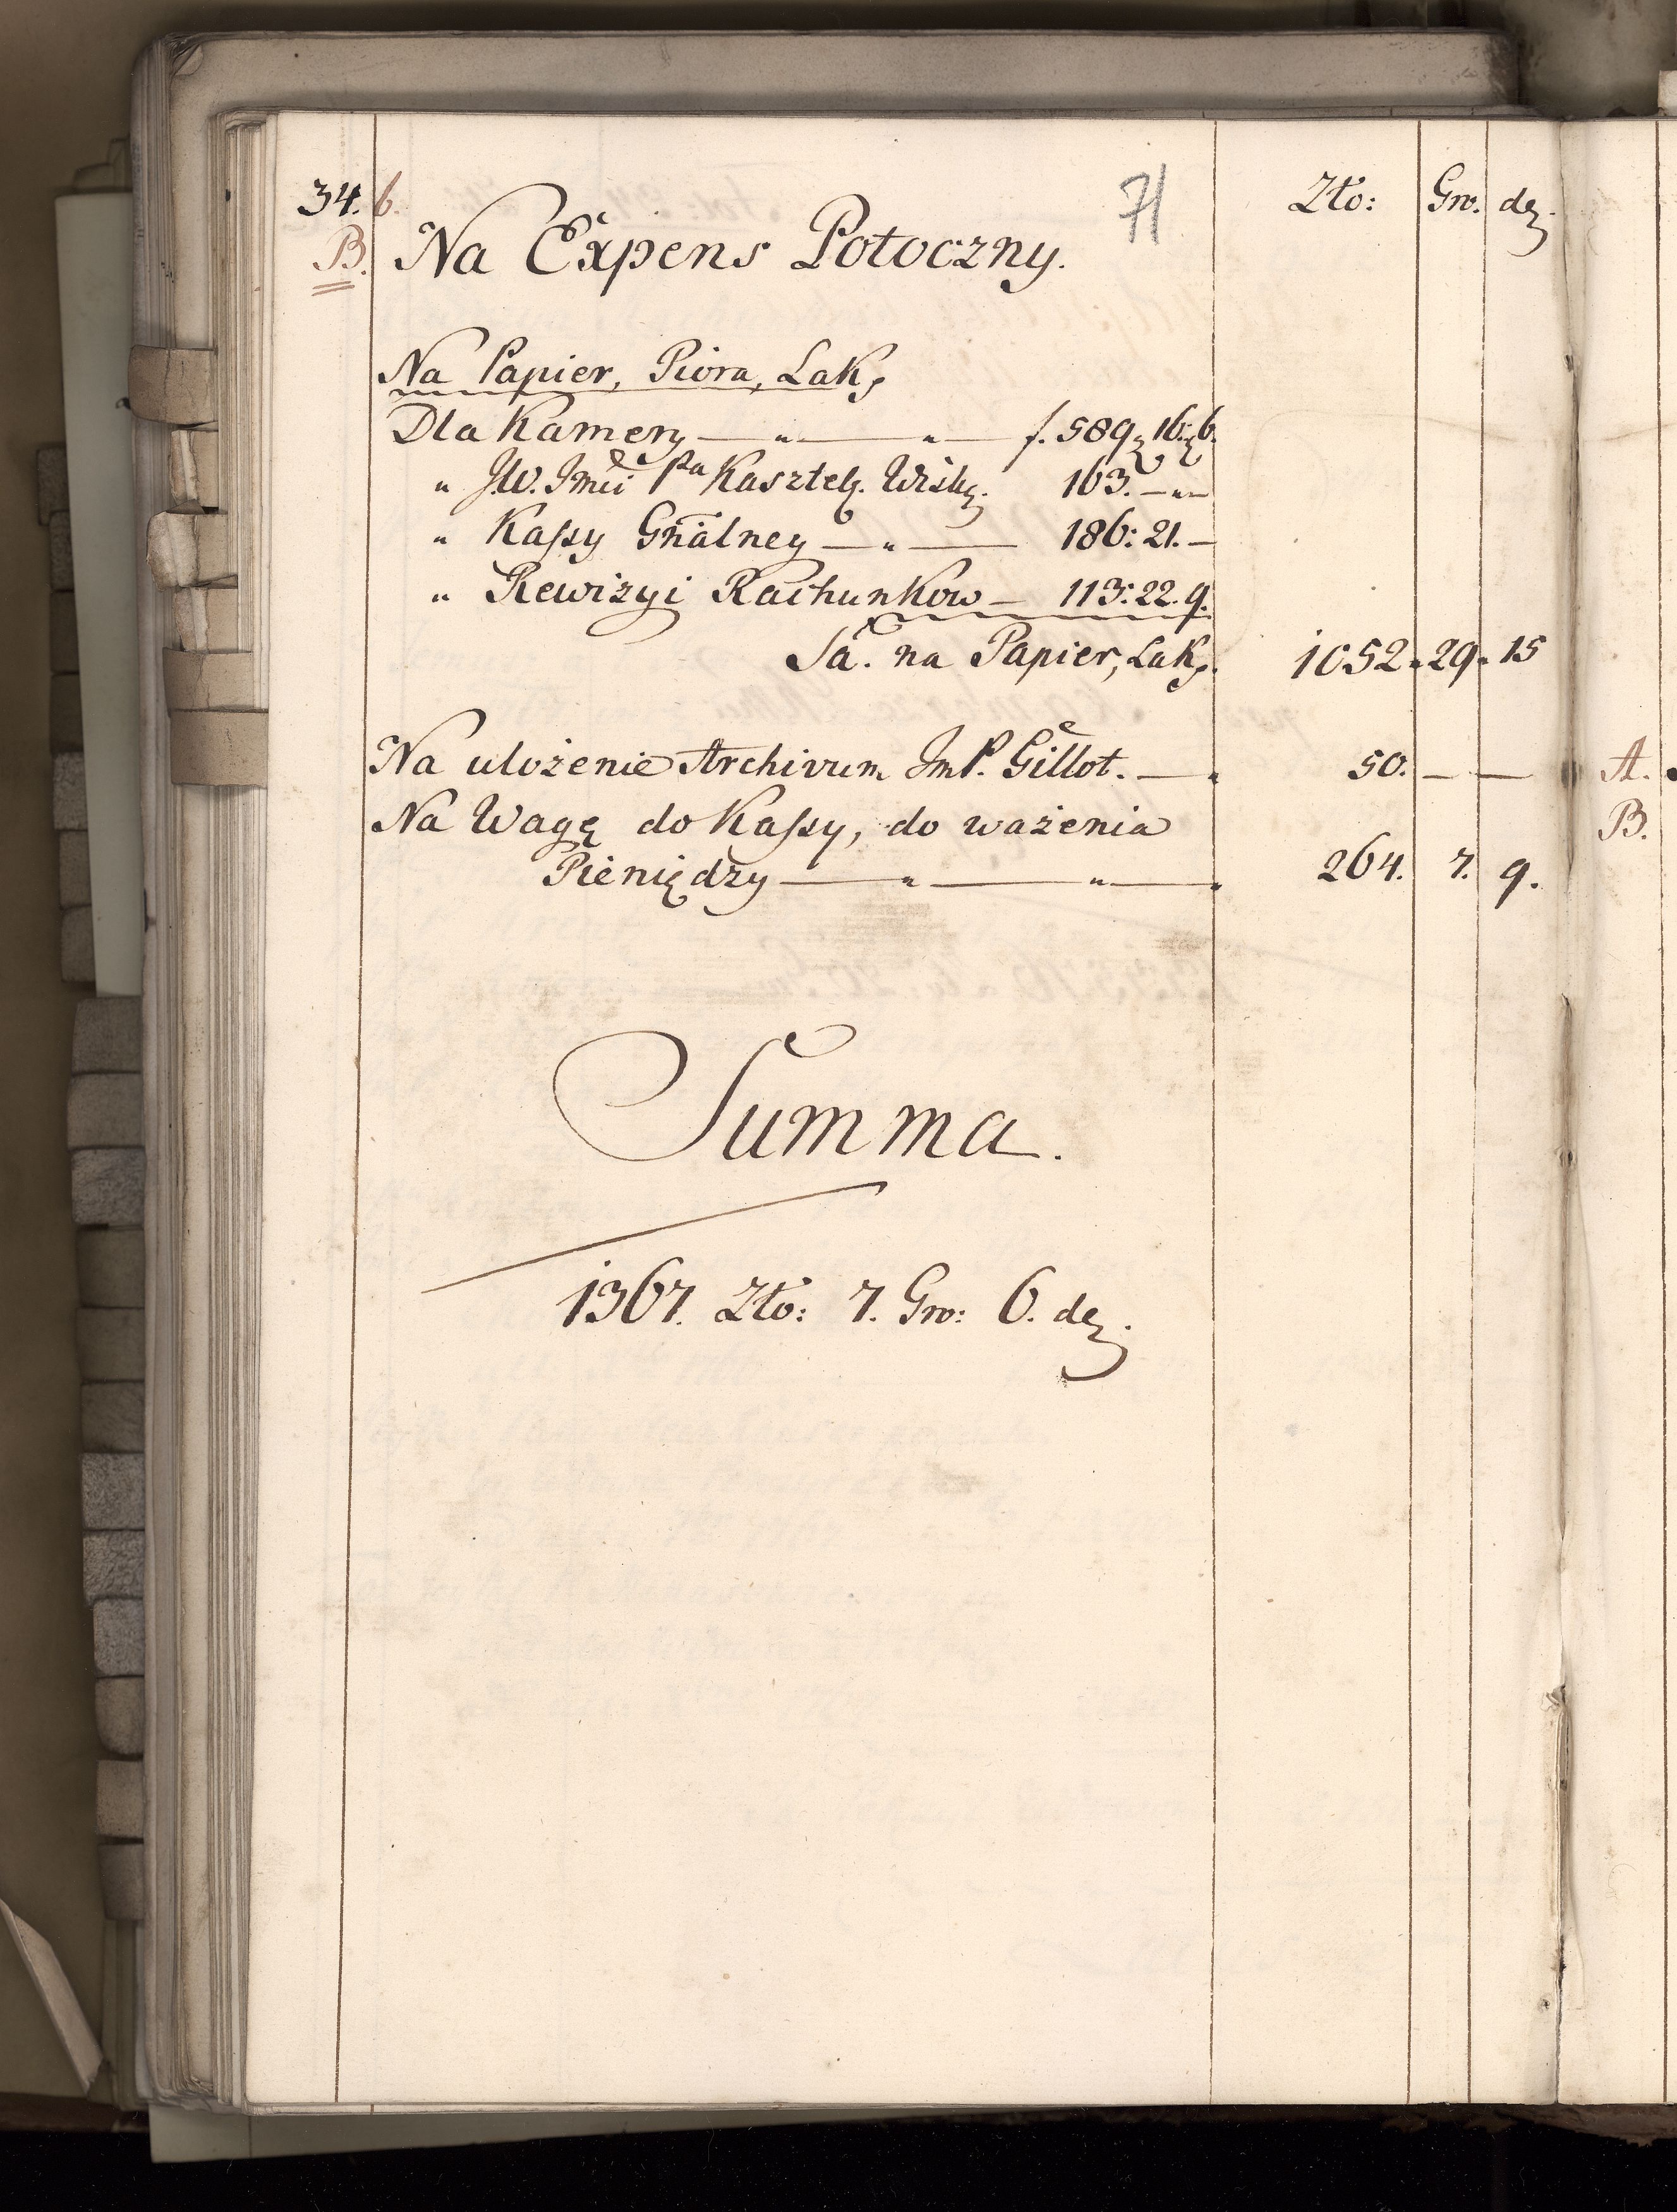 34. 6. 71 Zło: Gro. de.
B. Na Expens Potoczny.
Na Papier, Piora, Lak,
Dla Kamery — „ — „ — f. 589. 16. 6.
„ J.W. Jmci Pa Kasztel. Wisly. 163. — „ —
„ Kassy Gnalney — „ — 186: 21. —
„ Rewizyi Rachunkow — 113: 22. 9.
Sa. na Papier, Lak. 1052. 29. 15
Na ulożenie Archivum JmP. Gillot. — „ 50. — —
Na Wagę do Kassy, do ważenia
Pieniędzy — „ — „ — „ 264. 7. 9.
Summa.
1367. Zło: 7. Gro: 6. de.
A.
B.